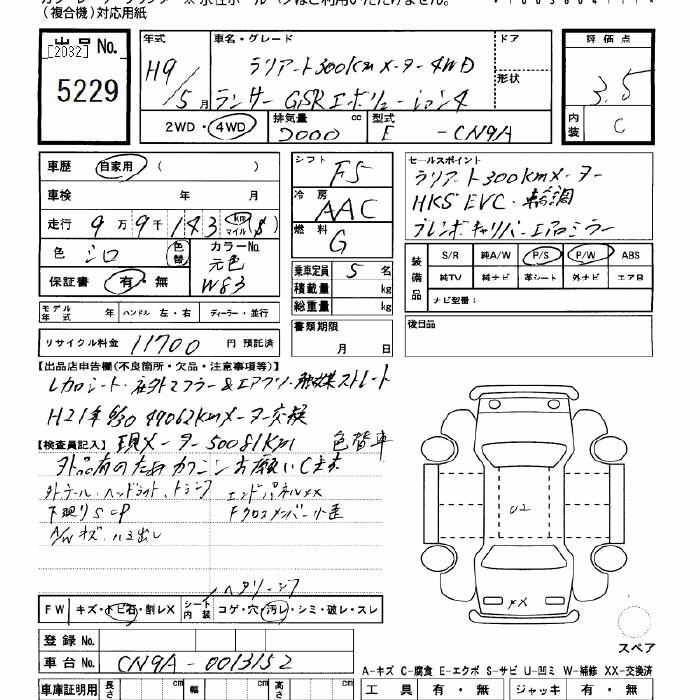 (複合機)対応用紙
出品No.
[2032]
5229
年式
H9
/5月
車名・グレード
ラリアート300Kmメーター4WD
ランサーGSRエボリューション4
ドア
形状
評価点
3.5
内装
C
2WD・4WD
排気量
2000 cc
型式
E -CN9A
車歴 自家用 ( )
車検 年 月
走行 9万9千143 km マイル ($)
色 シロ 色替
カラーNo.
元色
W83
保証書 有・無
シフト F5
冷房 AAC
燃料 G
乗車定員 5 名
積載量 kg
総重量 kg
セールスポイント
ラリアート300Kmメーター
HKS EVC・輪調
ブレンボキャリパーエアロミラー
装備品
S/R 純A/W P/S P/W ABS
純TV 純ナビ 革シート 外ナビ エアB
ナビ型番:
モデル年式 年 ハンドル 左・右 ディーラー・並行
書類期限
月 日
後日品
リサイクル料金 11700 円 預託済
【出品店申告欄(不良箇所・欠品・注意事項等)】
レカロシート・社外マフラー&エアクリ・触媒ストレート
H21年6/30 49062Kmメーター交換
【検査員記入】 現メーター50081Km 色替車
外品有のため カクニンお願いします
外テール・ヘッドライト、トランク エンドパネルXX
下廻りSCP Fクロスメンバー小歪
A/Wキズ・ハミ出し
U2
FX
ヘタリ・シワ
FW キズ・トビ石・割レX シート内装 コゲ・穴・汚レ・シミ・破レ・スレ
登録No.
車台No. CN9A-0013152
スペア
A-キズ C-腐食 E-エクボ S-サビ U-凹ミ W-補修 XX-交換済
車庫証明用 長さ cm 幅 cm 高さ cm
工具 有・無 ジャッキ 有・無